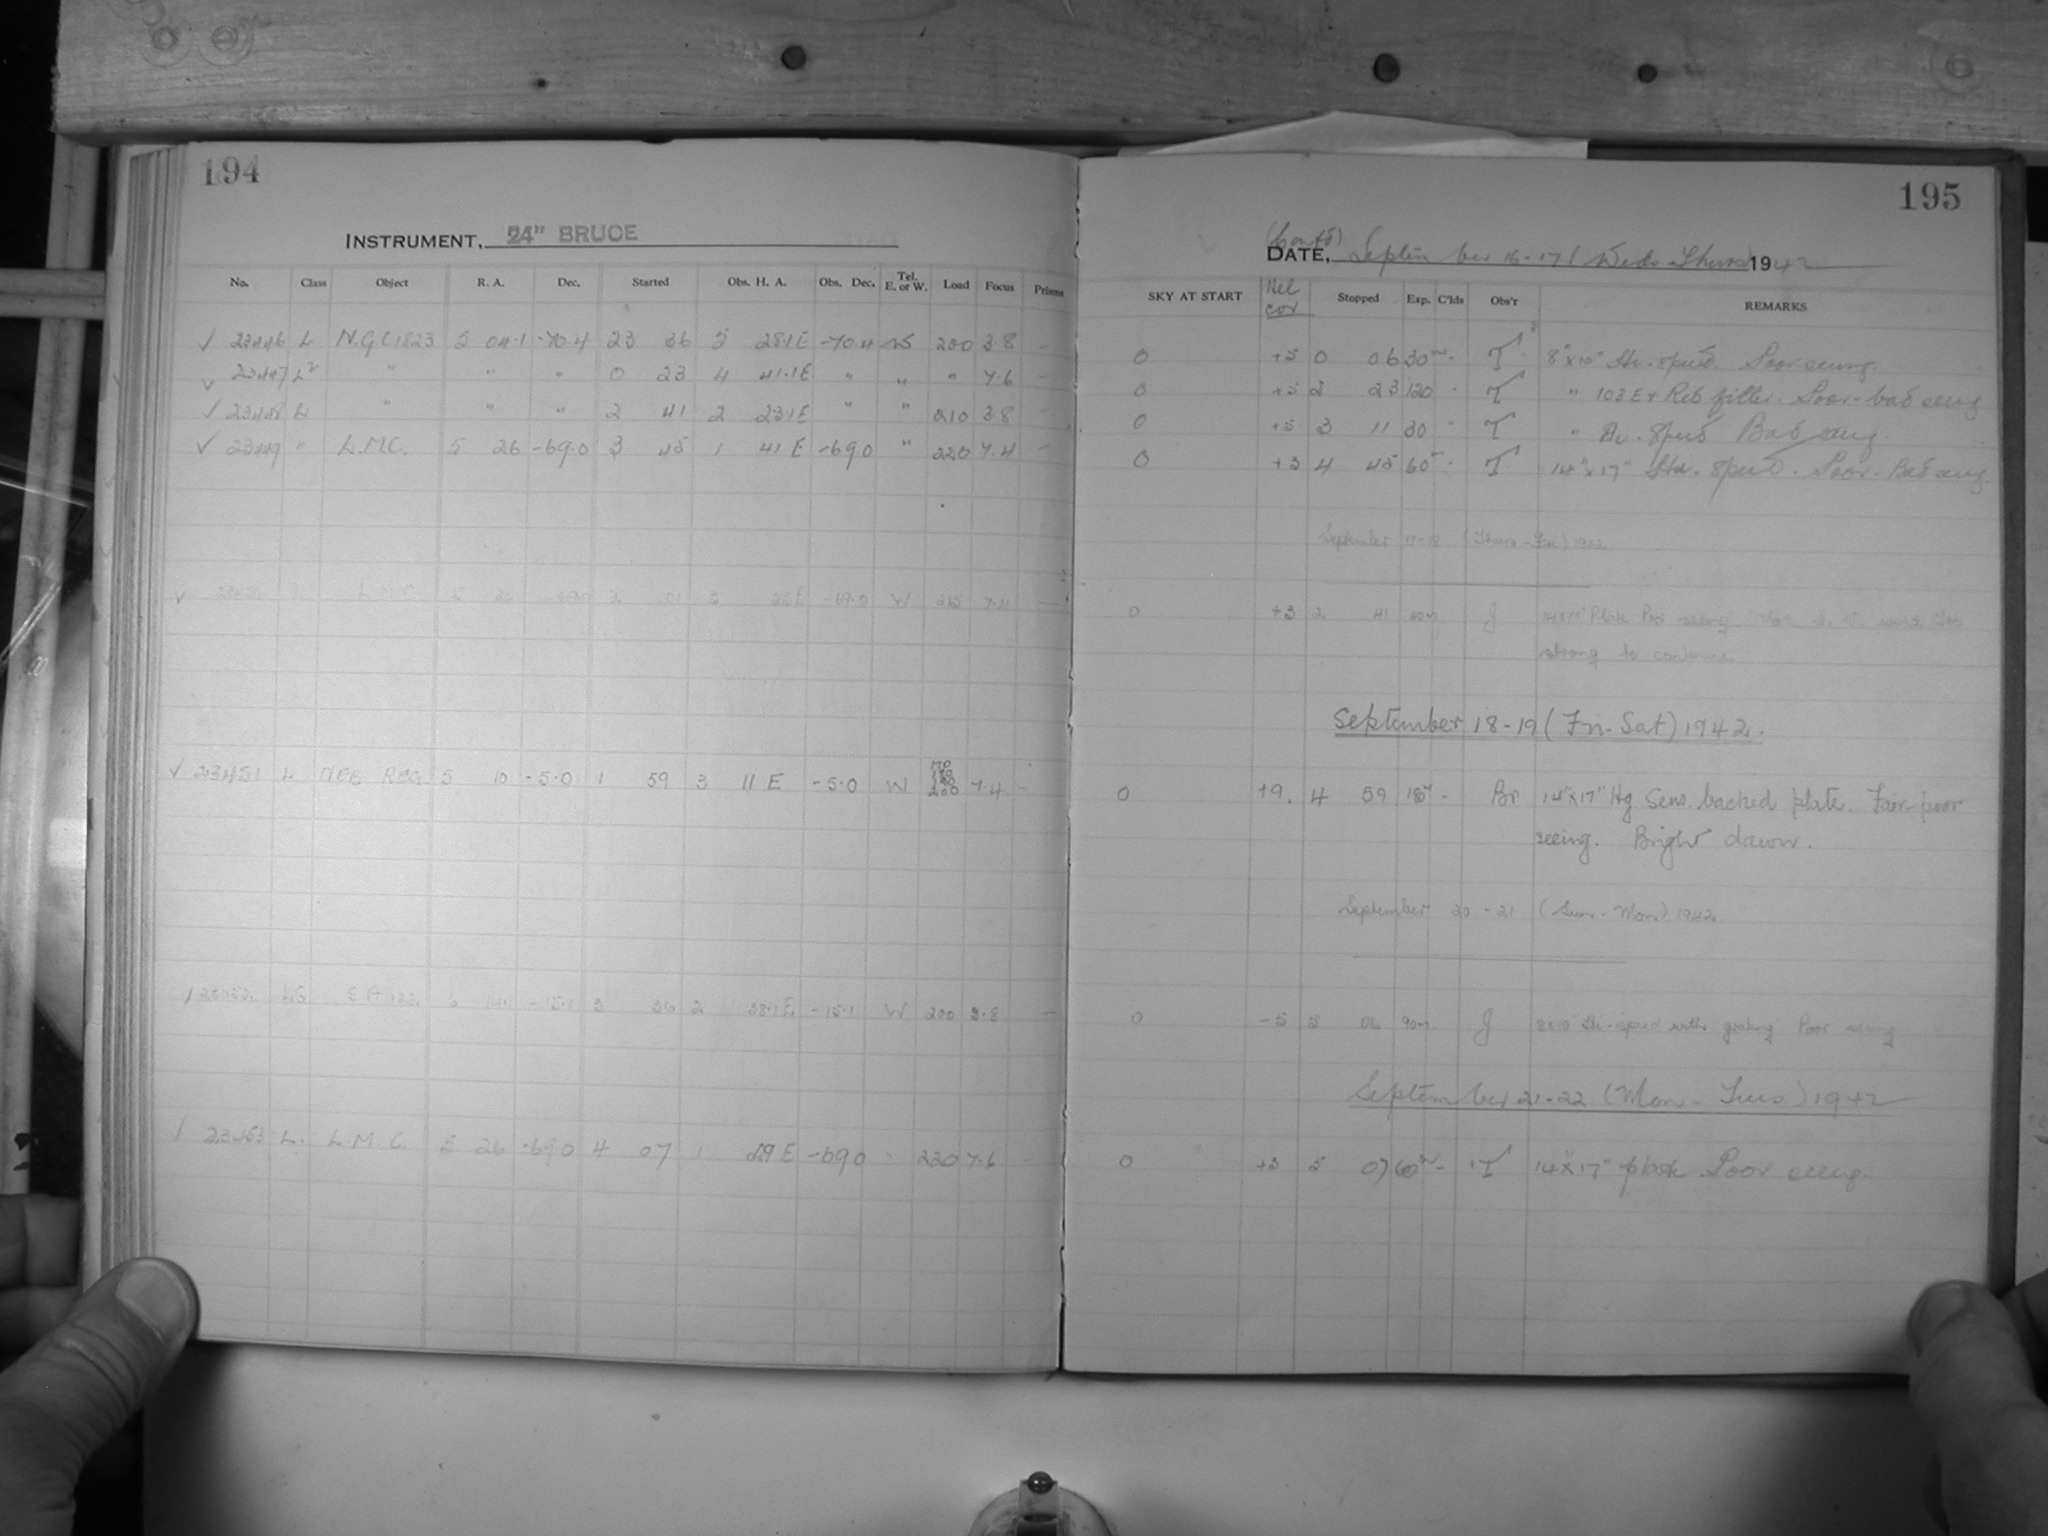 194
INSTRUMENT, 24" BRUCE
No. Class Object R. A. Dec. Started Obs. H. A. Obs. Dec. Tel. E. or W. Load Focus Prisms
√ 23446 L N.G.C 1823 5 04.1 -70.4 23 36 5 28.1E -70.4 W 200 3.8 -
√ 23447 L² " " " 0 23 4 41.1E " " " 7.6 -
√ 23448 L " " " 2 41 2 23.1E " " 210 3.8
√ 23449 " L.M.C. 5 26 -69.0 3 45 1 41 E -69.0 " 220 7.4 -
√ 23450 L L.M.C. 5 26 -69.0 2 01 3 25E -69.0 W 215 -
√ 23451 L REG 5 10 -5.0 1 59 3 11 E -5.0 W 200 7.4 -
√ 23452 LG S A 122 -15.1 3 36 2 38.1E -15.1 W 200 3.8 -
√ 23453 L. L.M.C. 5 26 -69.0 4 07 1 19 E -69.0 " 220 7.6 -
195
(Contd)
DATE, September 16-17 (Weds-Thurs) 1942
SKY AT START Rel cor Stopped Exp. C'lds Obs'r REMARKS
0 +5 0 06 30m - T 8"x10" Hi-speed. Poor seeing.
0 +5 2 23 120 - T " 103E + Red filter. Poor-bad seeing
0 +5 3 11 30 - T " Hi-speed Bad seeing
0 +3 4 45 60m - T 14"x17" Hi-speed. Poor-Bad seeing.
September 17-18 (Thurs-Fri) 1942
0 +3 2 41 40m J 14x17" Plate Poor seeing.
strong to continue
September 18-19 (Fri-Sat) 1942.
0 +9. 4 59 180m - Br 14"x17" Hg Sens. backed plate. Fair-poor
seeing. Bright dawn.
September 20-21 (Sun-Mon) 1942.
0 -5 5 06 90m J 8x10" Hi-speed with grating Poor seeing
September 21-22 (Mon-Tues) 1942
0 +3 5 07 60m - T 14"x17" plate Poor seeing.